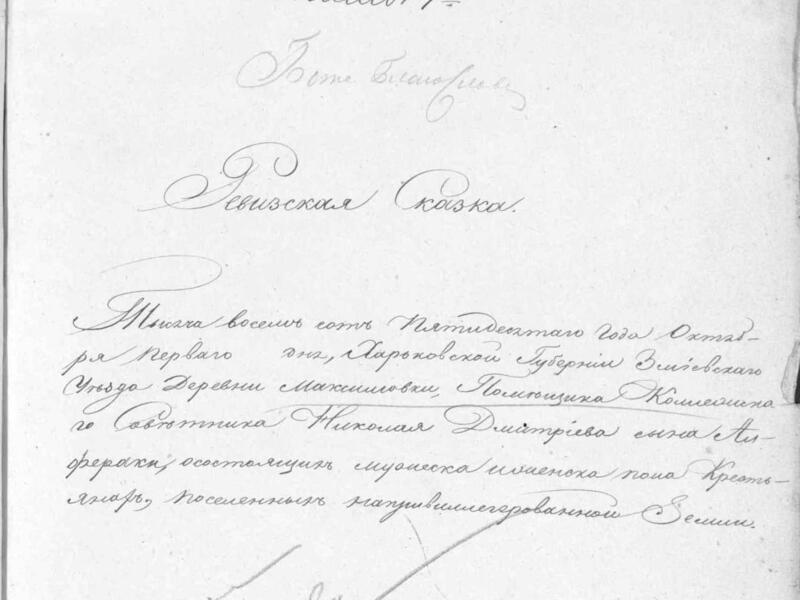 Боже Благослови
Ревизская Сказка.
Тысяча восемь сотъ пятидесятаго года Октяб-
ря перваго дня, Харьковской Губерніи Зміевскаго
Уѣзда Деревни Максимовки, Помѣщика Коллежска-
го Совѣтника Николая Дмитріева сына Ал-
фераки, осостоящихъ мужеска иженска пола Кресть-
янахъ, поселенныхъ напривиллегированной Земли.